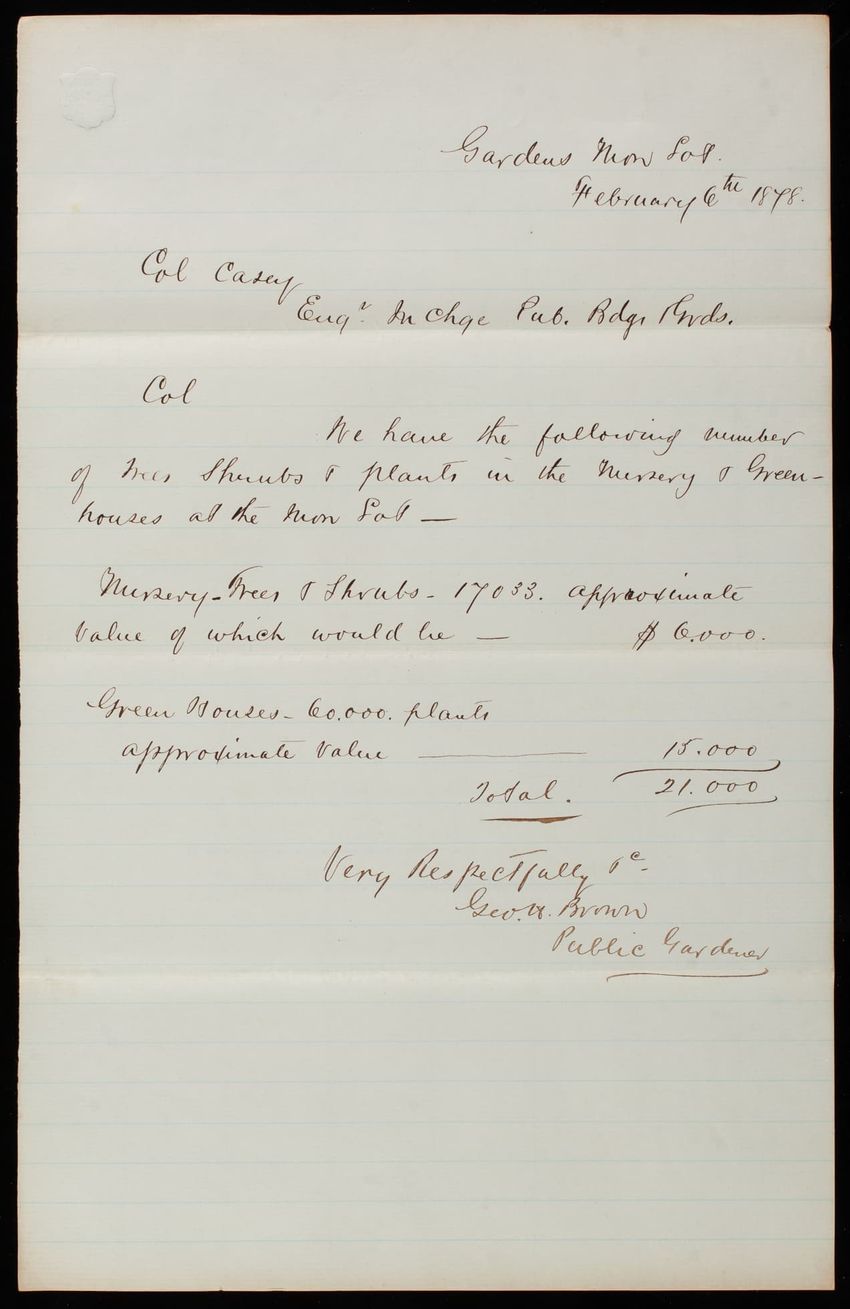 Gardens Mon Lot.
February 6th 1878.
Col Casey
Engr. In Chge Pub. Bdgs & Grds.
Col
We have the following number
of Trees Shrubs & plants in the Nursery & Green-
houses at the Mon Lot —
Nursery - Trees & Shrubs - 17033. approximate
value of which would be — $ 6.000.
Green Houses - 60.000. plants
approximate value — 15.000
Total. 21.000
Very Respectfully &c-
Geo. H. Brown
Public Gardener